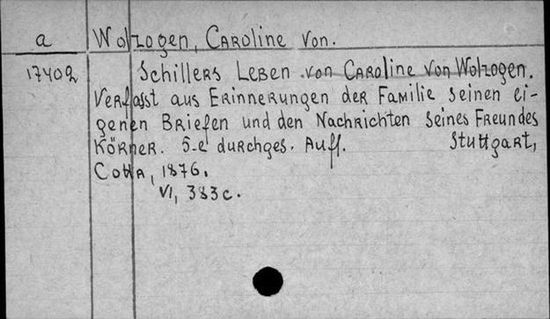 a Wolzogen, Caroline von.
17402 Schillers Leben von Caroline von Wolzogen.
Verfasst aus Erinnerungen der Familie seinen ei-
genen Briefen und den Nachrichten seines Freundes
Körner. 5-e durchges. Aufl. Stuttgart,
Cotta, 1876.
VI, 383 c.